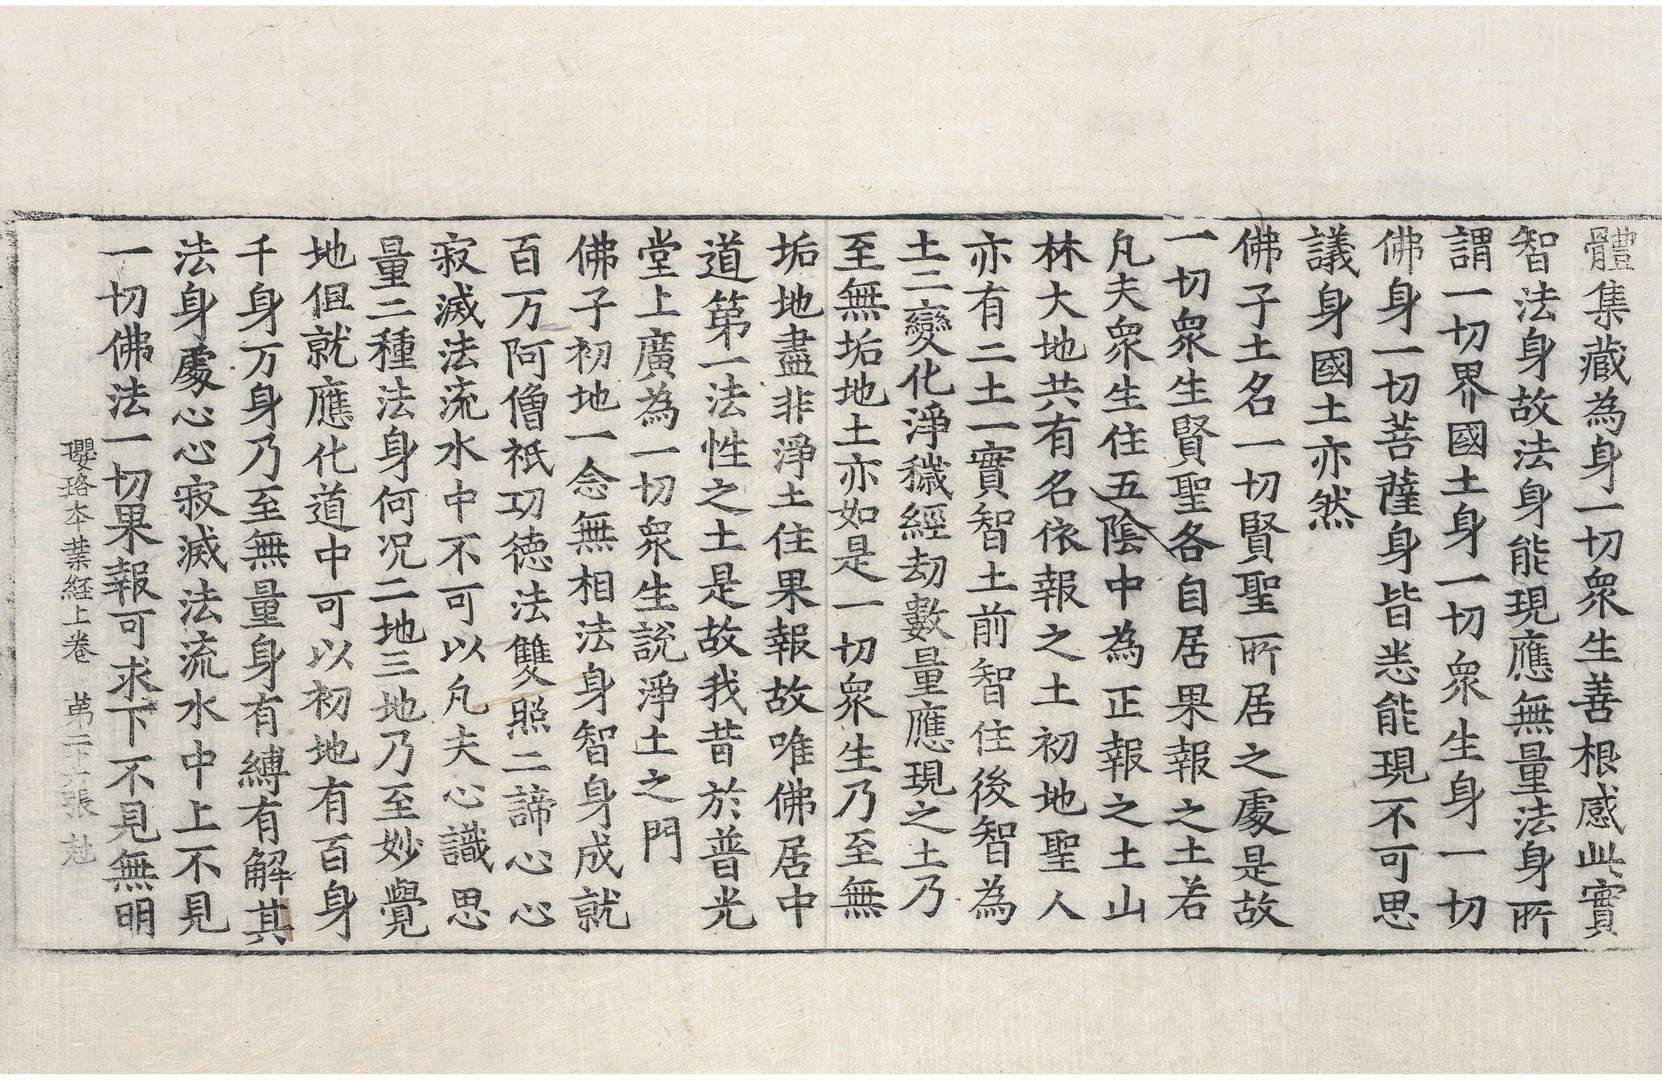 體集藏為身一切衆生善根感此實
智法身故法身能現應無量法身所
謂一切界國土身一切衆生身一切
佛身一切菩薩身皆悉能現不可思
議身國土亦然
佛子土名一切賢聖所居之處是故
一切衆生賢聖各自居果報之土若
凡夫衆生住五陰中為正報之土山
林大地共有名依報之土初地聖人
亦有二土一實智土前智住後智為
土二變化淨穢經劫數量應現之土乃
至無垢地土亦如是一切衆生乃至無
垢地盡非淨土住果報故唯佛居中
道第一法性之土是故我昔於普光
堂上廣為一切衆生說淨土之門
佛子初地一念無相法身智身成就
百万阿僧祇功德法雙照二諦心心
寂滅法流水中不可以凡夫心識思
量二種法身何况二地三地乃至妙覺
地但就應化道中可以初地有百身
千身万身乃至無量身有縛有解其
法身處心心寂滅法流水中上不見
一切佛法一切果報可求下不見無明
瓔珞本業経上卷 苐二十六張 尅